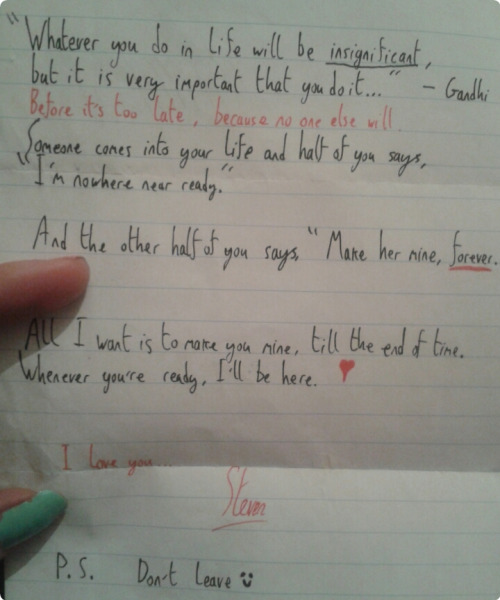 "Whatever you do in life will be insignificant,
but it is very important that you do it..." - Gandhi
Before it's too late, because no one else will.
Someone comes into your life and half of you says,
"I'm nowhere near ready."
And the other half of you says, "Make her mine, forever.
All I want is to make you mine, till the end of time.
Whenever you're ready, I'll be here. ♥
I love you...
Steven
P.S. Don't leave :)